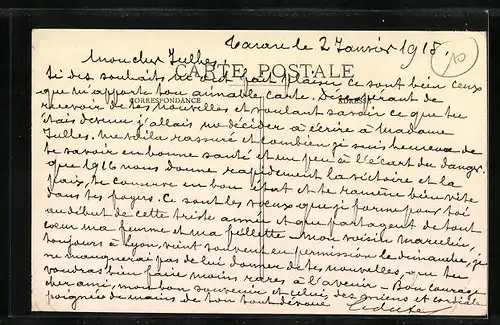 Tarare le 2 Janvier 1916.
Mon cher Jules
CARTE POSTALE
Si des souhaits m'ont fait plaisir ce sont bien ceux
que m'apporte ton aimable carte. Désespérant de
CORRESPONDANCE
recevoir de tes nouvelles et voulant savoir ce que tu
étais devenu j'allais me décider à écrire à Madame
Jules. Me voilà rassuré et combien je suis heureux de
te savoir en bonne santé et un peu à l'écart du danger.
que 1916 nous donne rapidement la victoire et la
paix, te conserve en bon état et te ramène bien vite
dans tes foyers. Ce sont les vœux que je forme pour toi
au début de cette triste année et que partagent de tout
cœur ma femme et ma fillette. Mon voisin
toujours à Lyon, vient souvent en permission le dimanche, je
ne manquerai pas de lui donner de tes nouvelles, que tu
voudras bien faire moins rares à l'avenir. Bon courage
cher ami, mon bon souvenir et celui des anciens et cordiale
poignée de mains de ton tout dévoué